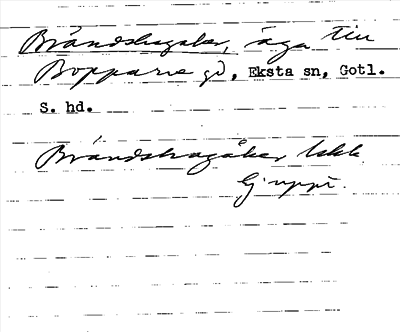 Brändshagaker, äga till
Boppare gd, Eksta sn, Gotl.
S. hd.
Brändshagåker Lskk
Ej uppt.